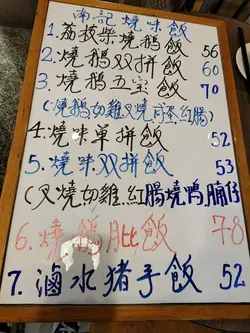 南記燒味飯
1.荔枝柴燒鵝飯 56
2.燒鵝双拼飯 60
3.燒鵝五宝飯 70
(燒鵝切雞叉燒咸蛋紅腸)
4.燒味單拼飯 52
5.燒味双拼飯 53
(叉燒切雞.紅腸燒鴨腩仔)
6.燒鵝髀飯 78
7.滷水猪手飯 52